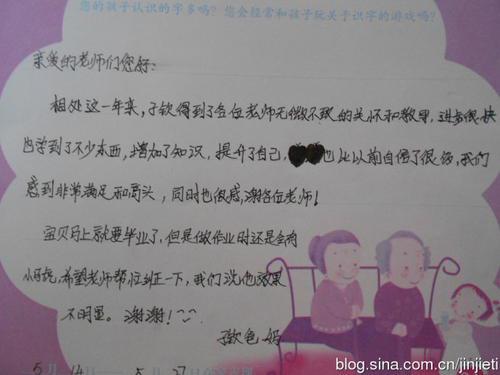 您的孩子认识的字多吗？您会经常和孩子玩关于识字的游戏吗？
亲爱的老师们您好：
相处这一年来，子钦得到了各位老师无微不致的关怀和教导，进步很快
也学到了不少东西，增加了知识，提升了自己，也比以前自信了很多，我们
感到非常满足和高兴，同时也很感谢各位老师！
宝贝马上就要毕业了，但是做作业时还是会有
小马虎，希望老师帮忙纠正一下，我们说他效果
不明显。谢谢！
子钦爸、妈
5月14日——5月27日
blog.sina.com.cn/jinjieti